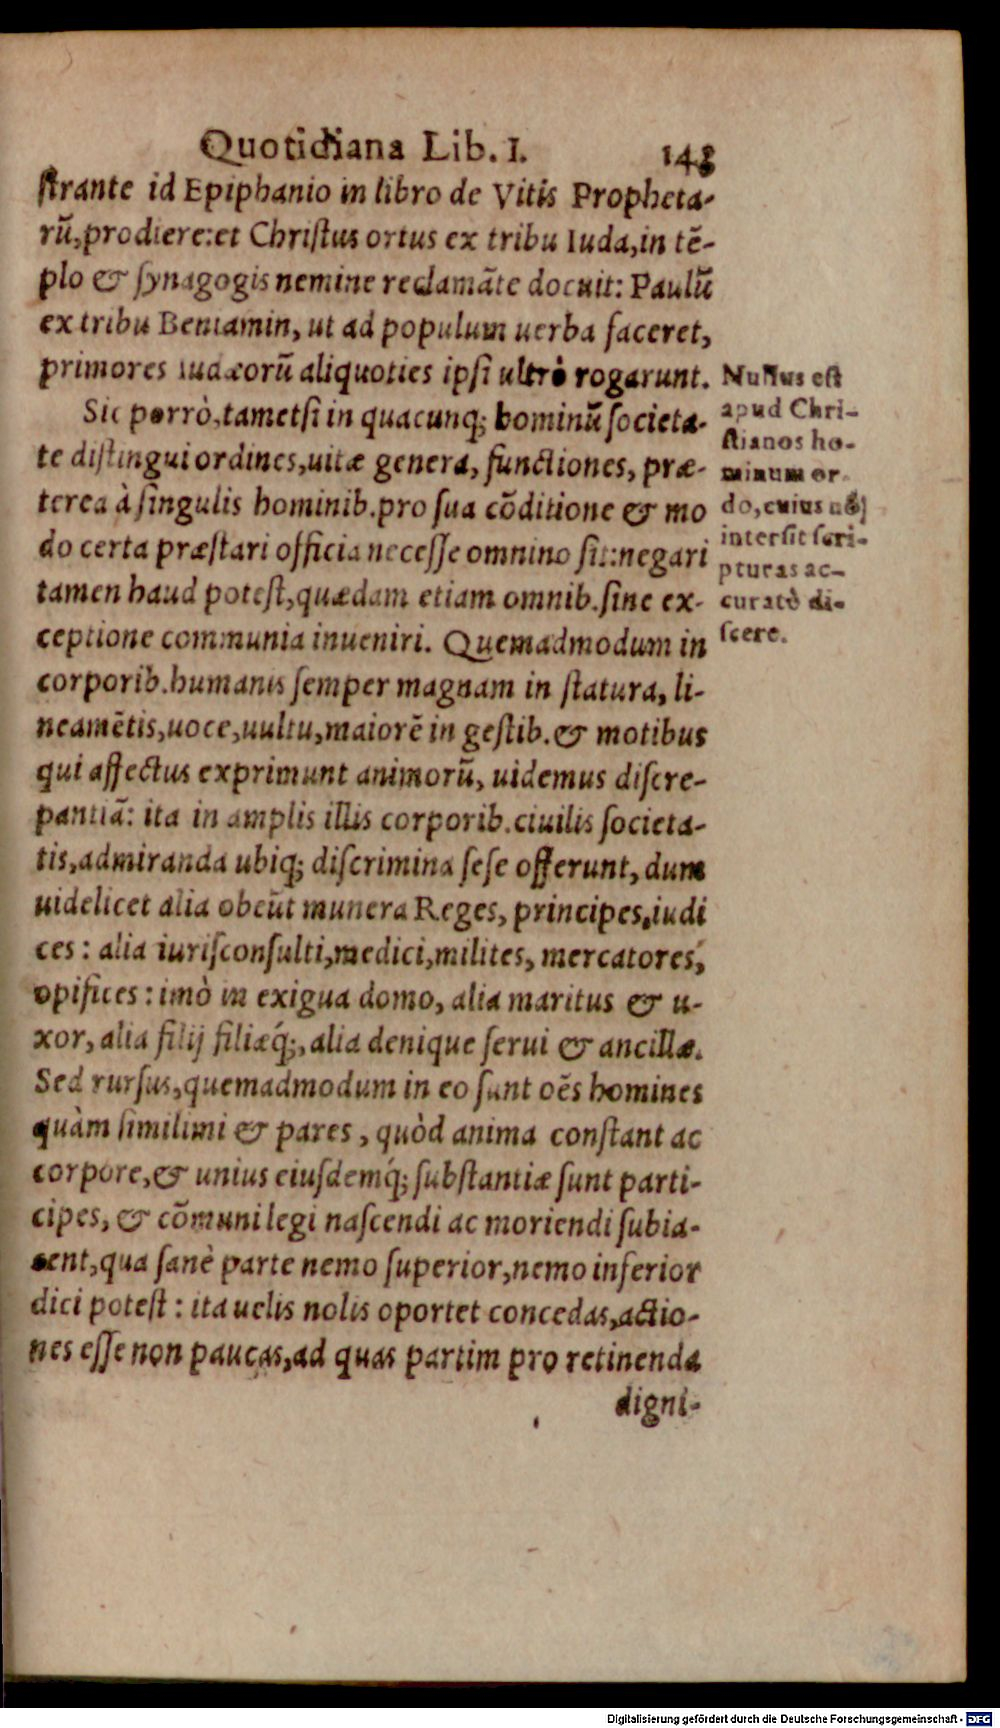 Quotidiana Lib. I. 143
ſtrante id Epiphanio in libro de Vitis Propheta-
rũ, prodiere: et Chriſtus ortus ex tribu Iuda, in tẽ-
plo & ſynagogis nemine reclamãte docuit: Paulũ
ex tribu Beniamin, ut ad populum uerba faceret,
primores Iudæorũ aliquoties ipſi ultrò rogarunt.
Sic porrò, tametſi in quacunq; hominũ ſocieta-
te diſtingui ordines, uitæ genera, functiones, præ-
terea à ſingulis hominib. pro ſua cõditione & mo
do certa præſtari officia neceſſe omnino ſit: negari
tamen haud poteſt, quædam etiam omnib. ſine ex-
ceptione communia inueniri. Quemadmodum in
corporib. humanis ſemper magnam in ſtatura, li-
neamẽtis, uoce, uultu, maiorẽ in geſtib. & motibus
qui affectus exprimunt animorũ, uidemus diſcre-
pantiã: ita in amplis illis corporib. ciuilis ſocieta-
tis, admiranda ubiq; diſcrimina ſeſe offerunt, dum
uidelicet alia obeũt munera Reges, principes, iudi
ces: alia iuriſconſulti, medici, milites, mercatores,
opifices: imò in exigua domo, alia maritus & u-
xor, alia filij filiæq́;, alia denique ſerui & ancillæ.
Sed rurſus, quemadmodum in eo ſunt oẽs homines
quàm ſimilimi & pares, quòd anima conſtant ac
corpore, & unius eiuſdemq́; ſubſtantiæ ſunt parti-
cipes, & cõmuni legi naſcendi ac moriendi ſubia-
cent, qua ſanè parte nemo ſuperior, nemo inferior
dici poteſt: ita uelis nolis oportet concedas, actio-
nes eſſe non paucas, ad quas partim pro retinenda
digni-
Nullus eſt
apud Chri-
ſtianos ho-
minum or-
do, cuius nõ
interſit ſcri-
pturas ac-
curatè di-
ſcere.
Digitalisierung gefördert durch die Deutsche Forschungsgemeinschaft - DFG